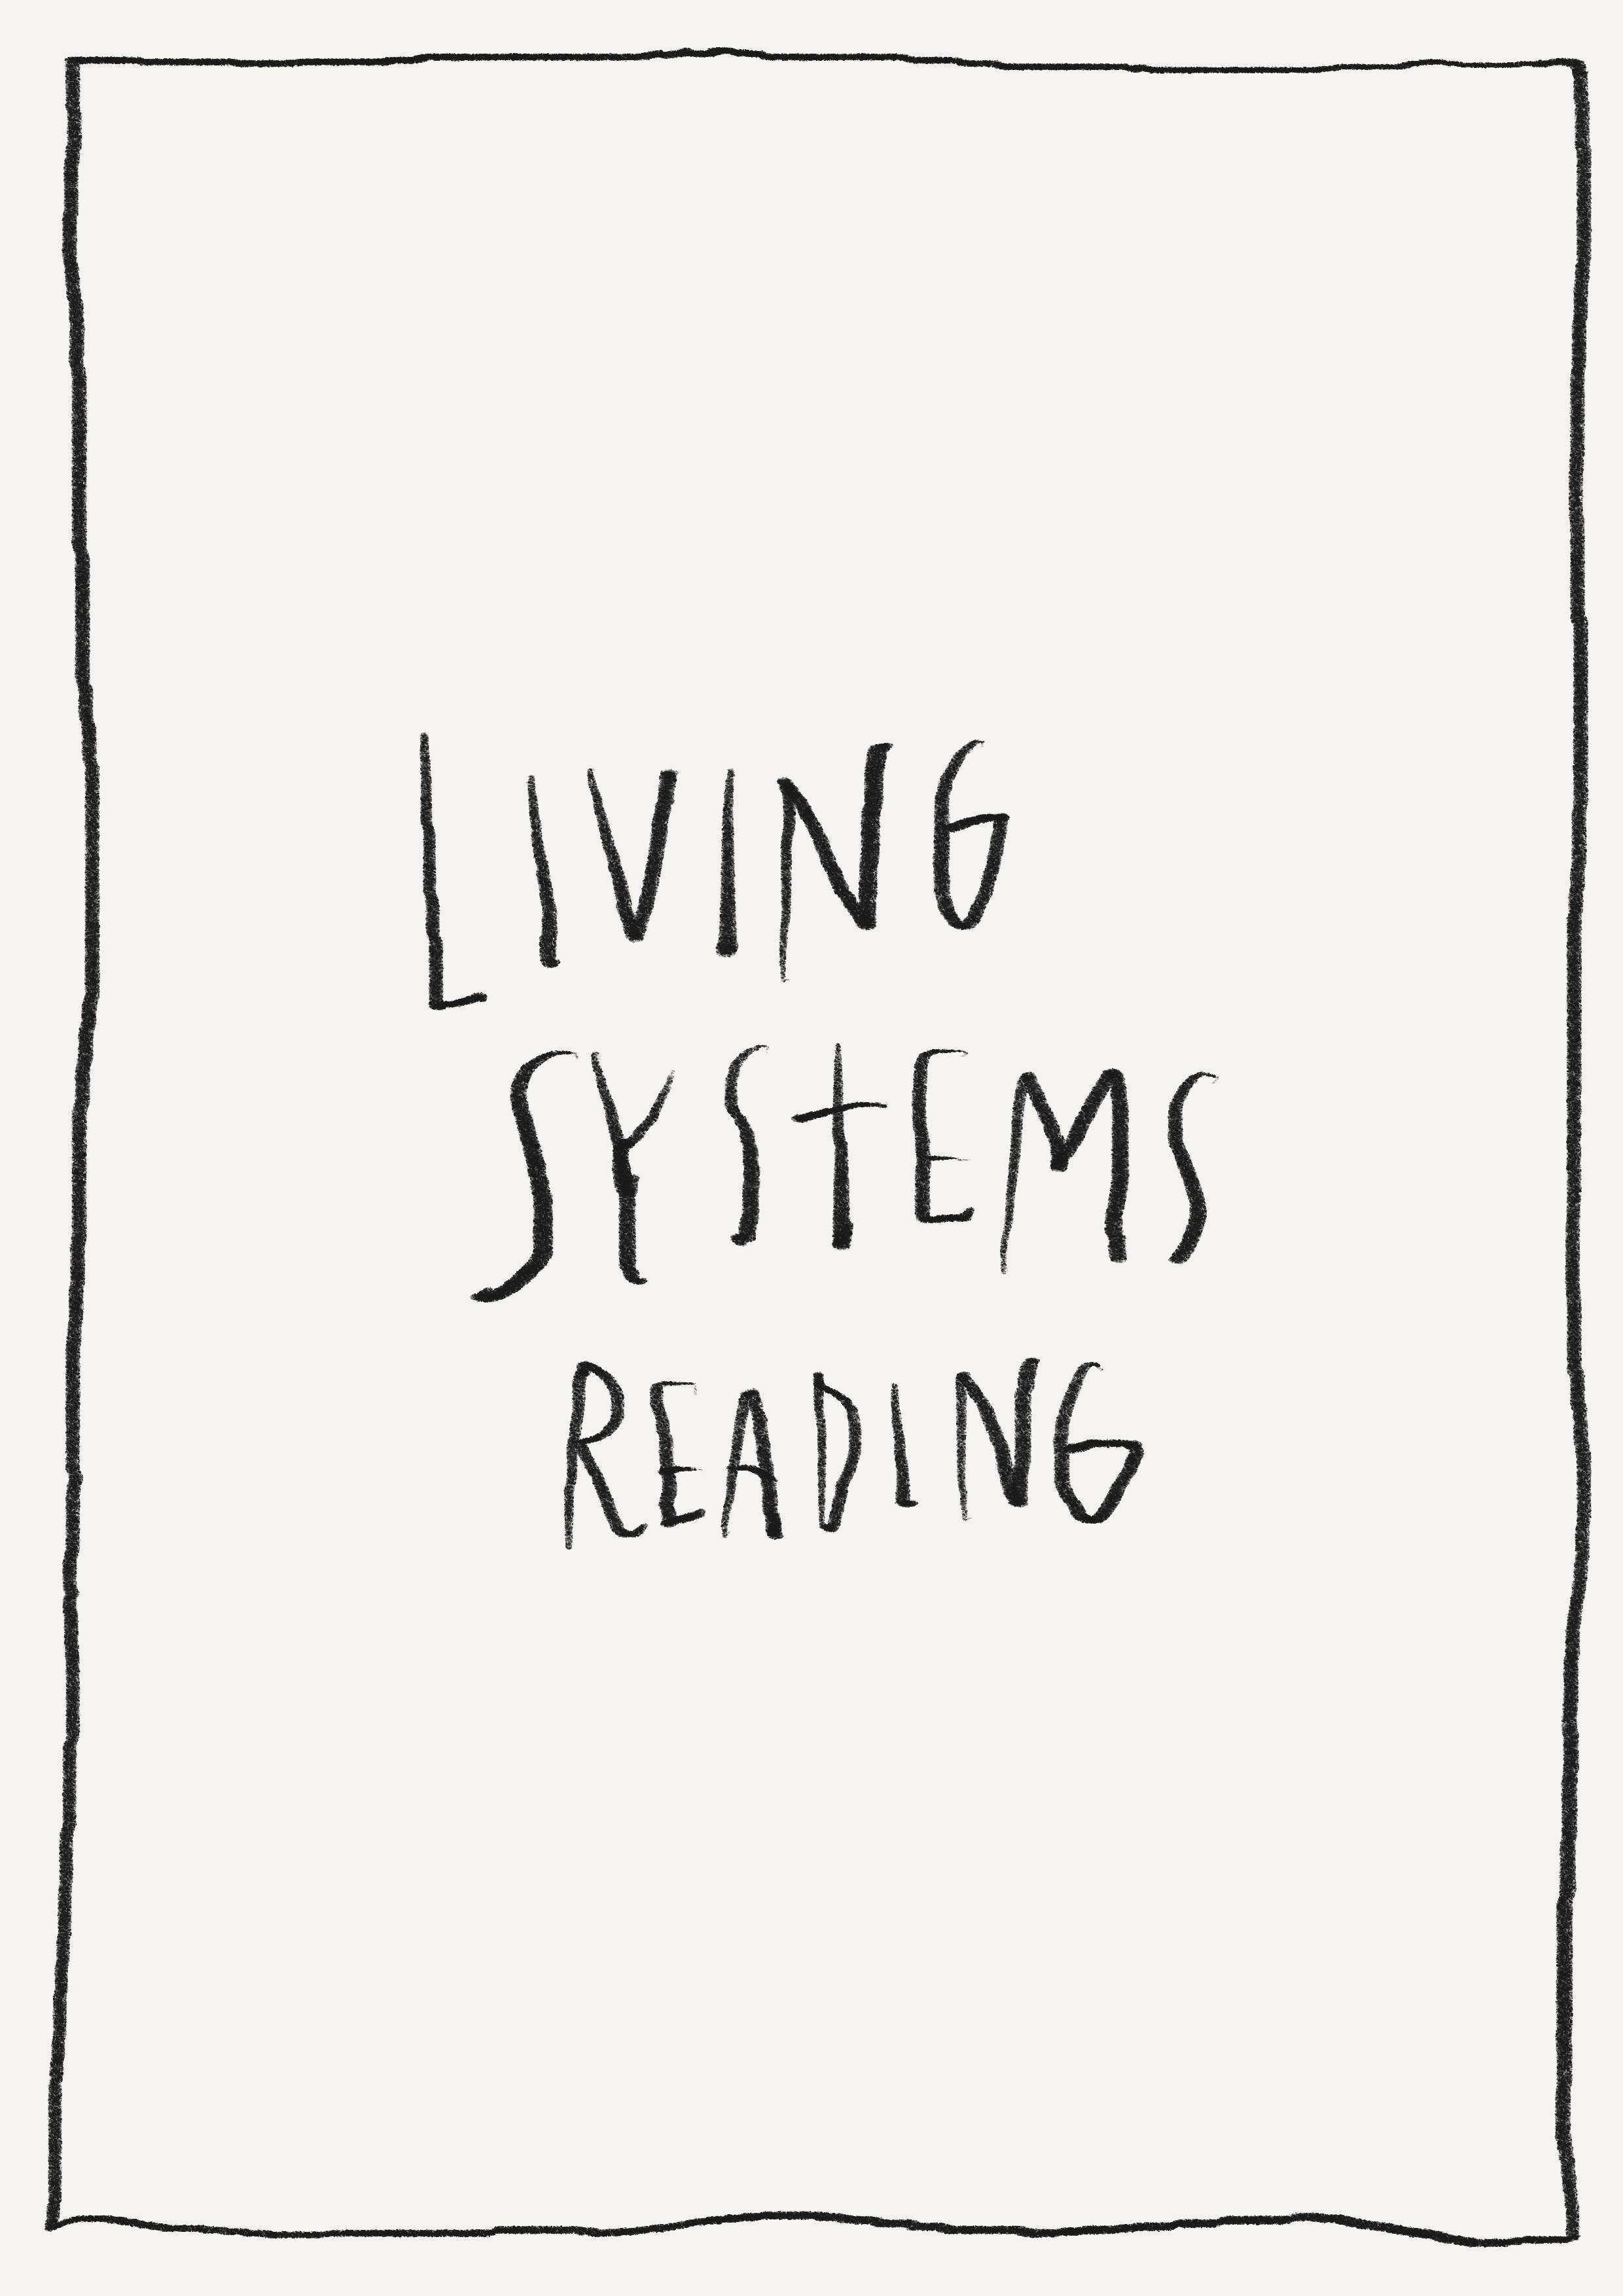 LIVING
SYStEMS
READING